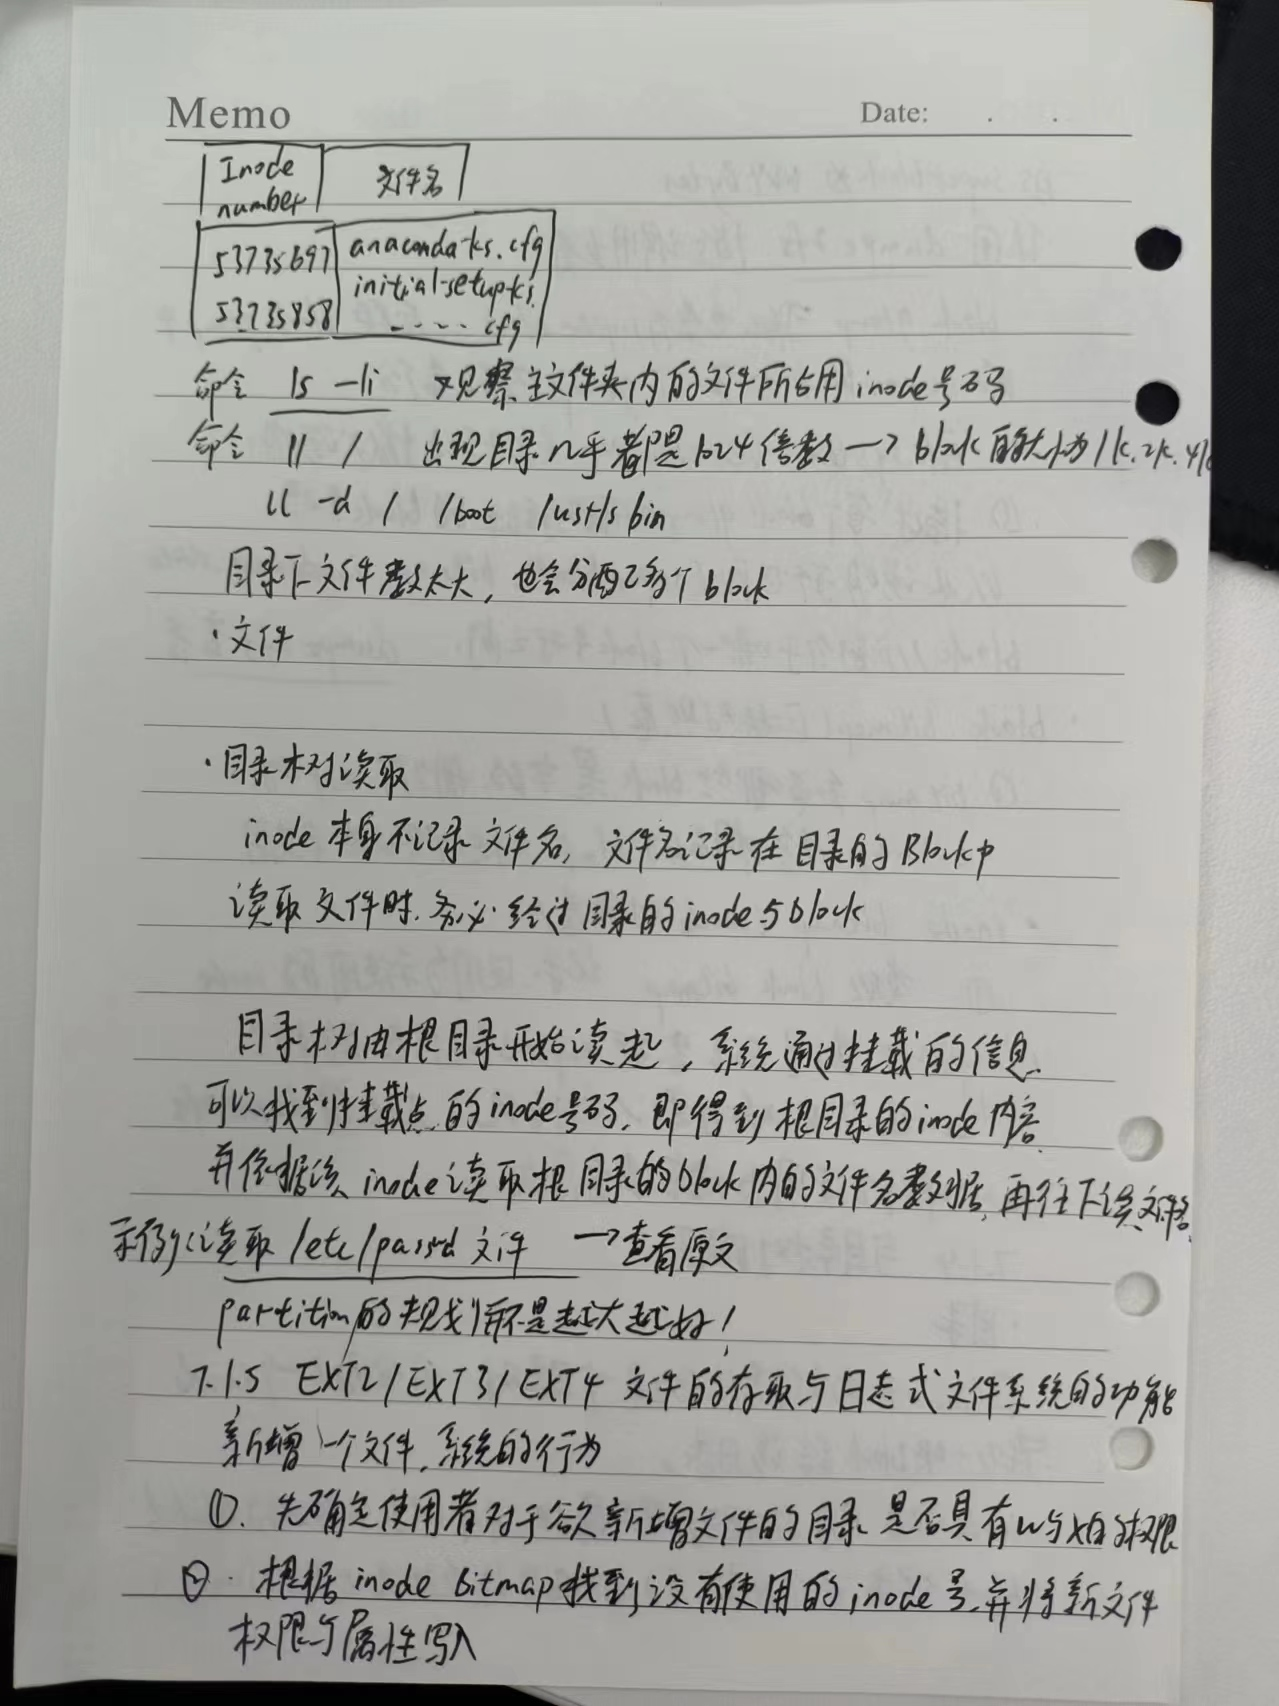 Memo
Date: . .
Inode number 文件名
53735697 anaconda-ks.cfg
53735858 initial-setup-ks.
.....cfg
命令 ls -li 观察主文件夹内的文件所占用inode号码
命令 ll / 出现目录几乎都是1024倍数→block的大小为1k.2k.4k
ll -d / /boot /usr/sbin
目录下文件数太大,也会分配多个block
·文件
·目录树读取
inode本身不记录文件名,文件名记录在目录的Block中
读取文件时.务必经过目录的inode与block
目录树由根目录开始读起,系统通过挂载的信息
可以找到挂载点的inode号码,即得到根目录的inode内容
并依据该inode读取根目录的block内的文件名数据,再往下读文件名
示例:读取/etc/passwd文件→查看原文
partition的规划并不是越大越好!
7.1.5 EXT2/EXT3/EXT4 文件的存取与日志式文件系统的功能
新增一个文件,系统的行为
①.先确定使用者对于欲新增文件的目录是否具有w与x的权限
②.根据inode bitmap找到没有使用的inode号,并将新文件
权限与属性写入